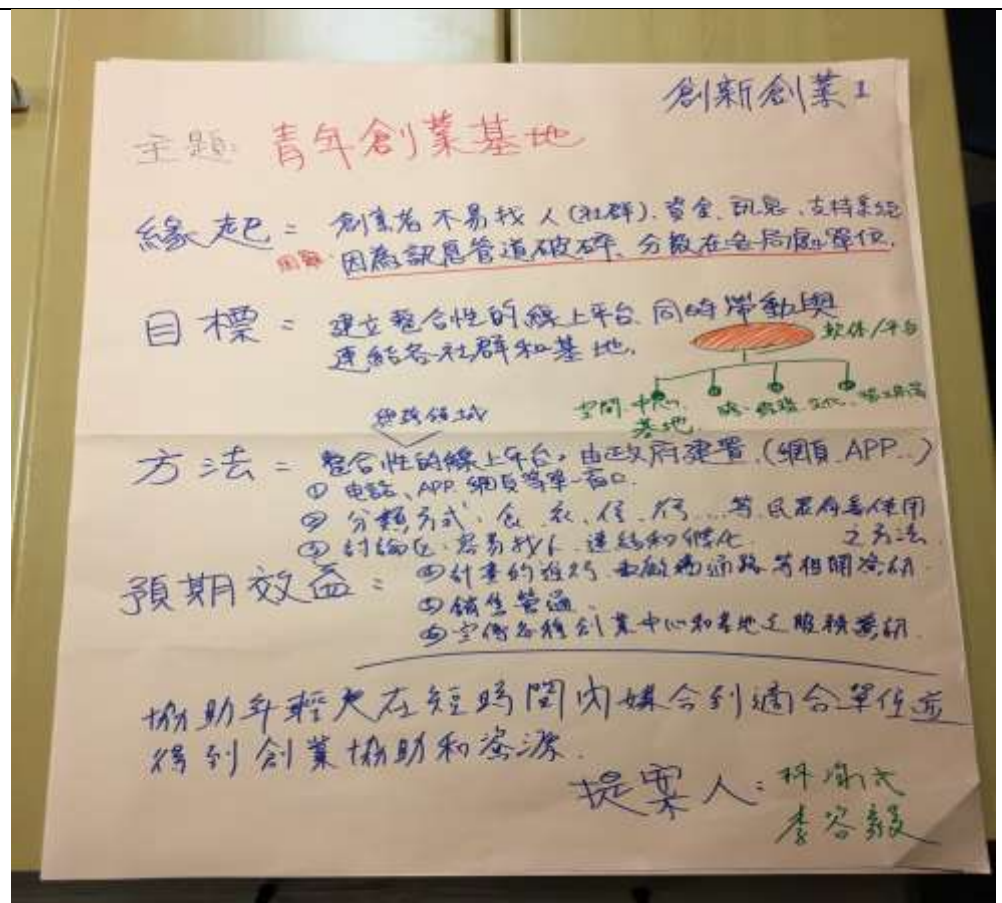 創新創業1
主題: 青年創業基地
緣起= 創業者不易找人(社群)、資金、訊息、支持系統
困難. 因為訊息管道破碎、分散在各局處單位.
目標= 建立整合性的線上平台.同時帶動與
連結各社群和基地.
軟体/平台
空間.中心.
基地.
方法= 整合性的線上平台,由政府建置.(網頁.APP..)
① 電話、APP.網頁等單一窗口.
② 分類方式.食.衣.住.行...等.民眾容易使用
之方法.
③ 討論區.容易找人.連結和孵化.
預期效益=
④計畫的進行.通路等相關資訊.
⑤銷售管道.
⑥宣傳各種創業中心和基地之服務資訊.
協助年輕人在短時間內媒合到適合單位並
得到創業協助和資源.
提案人: